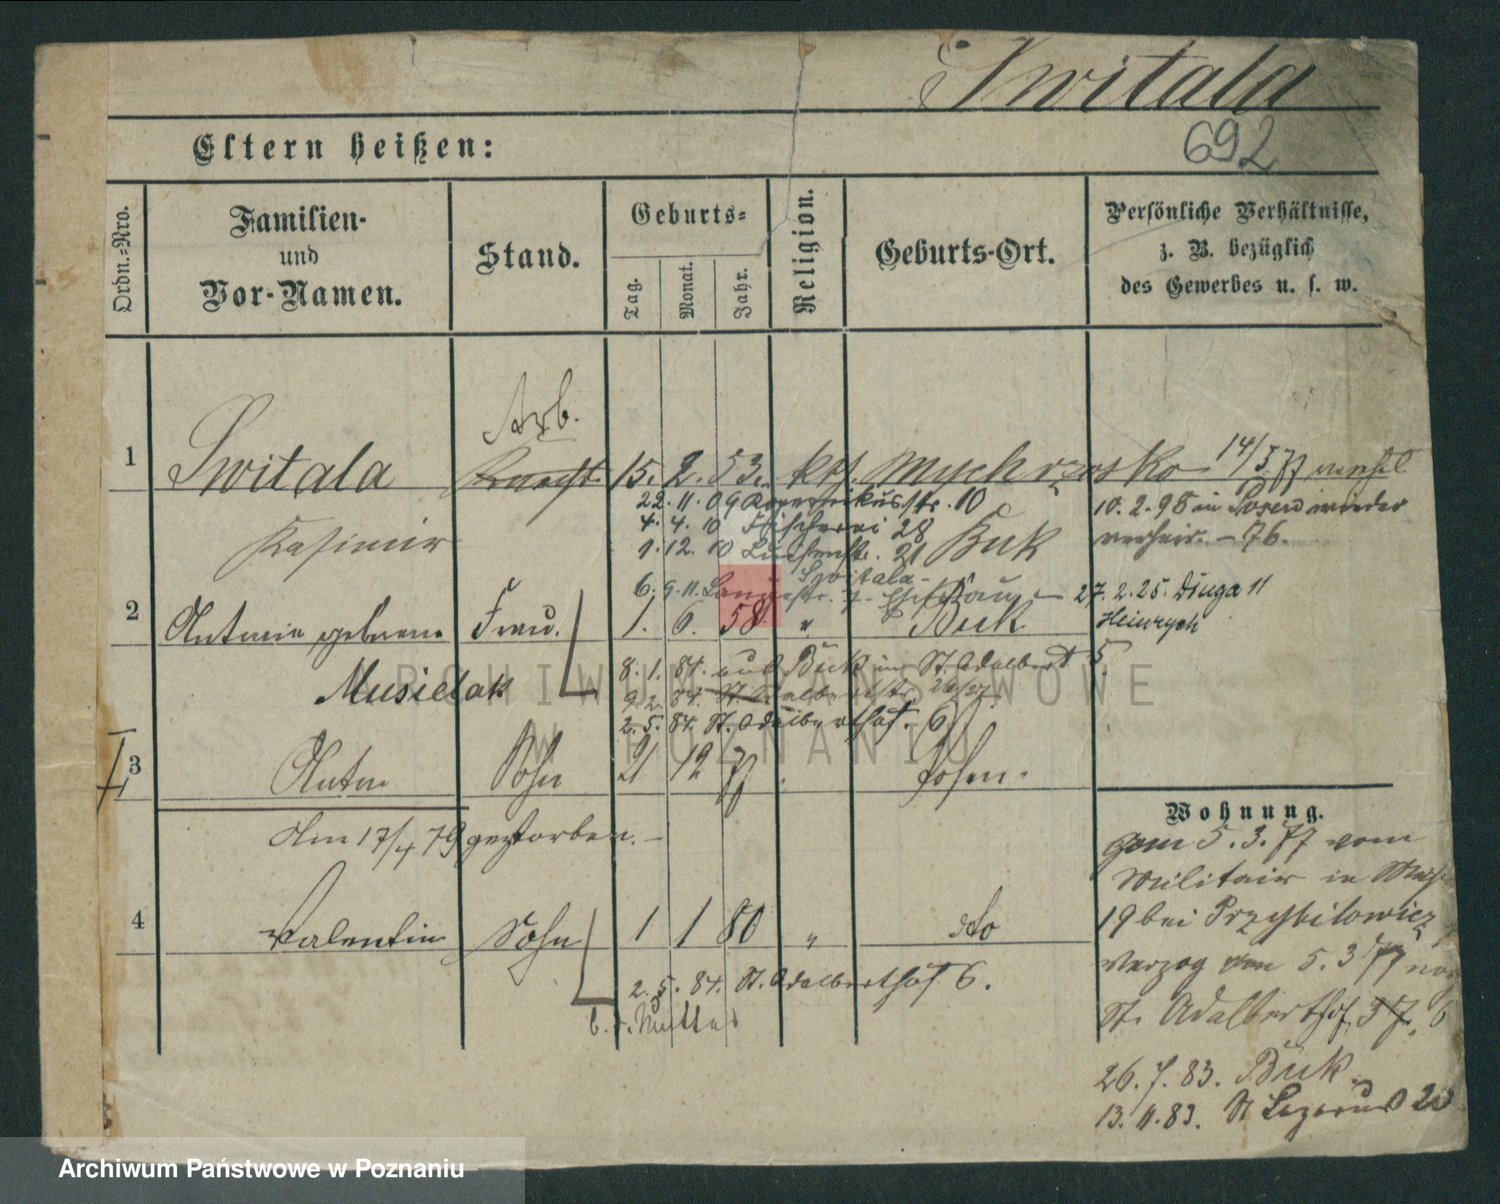 Switala
692
Eltern heißen:
Ordn.-Nro.
Familien-
und
Vor-Namen.
Stand.
Geburts-
Tag.
Monat.
Jahr.
Religion.
Geburts-Ort.
Persönliche Verhältnisse,
z. B. bezüglich
des Gewerbes u. s. w.
Arb.
1 Switala Knecht 15. 2. 53. kth. 14/5 77
22. 11. 09 10
Kasimir
4. 4. 10 Fischerei 28
1. 12. 10 21 Buk
10. 2. 98 in Posen wieder
verheir. - 76.
Switala
6. 9. 11. Langestr. 7
27. 2. 25. Dluga 11
Heinrych
2 Antonie geborene Frau. 1. 6. 58 " Buk
Musielak
8. 1. 84. aus Buk in St. Adalbert 5
9 2. 84. St. Adalbertstr. 26/27.
2. 5. 84. St. Adalberthof. 6
3 Anton Sohn 21 12 77 Posen.
Am 17/4 79 gestorben. -
4 Valentin Sohn 1 1 80 " do
2. 5. 84. St. Adalberthof 6.
b. d. Mutter
Wohnung.
zom 5. 3. 77 vom
Militair in
19 bei Przybilowicz
Verzog 5. 3 77
St. Adalberthof 37. 6
26. 7. 83. Buk
13. 11. 83. St Lazarus 20
ARCHIWUM PAŃSTWOWE
W POZNANIU
Archiwum Państwowe w Poznaniu